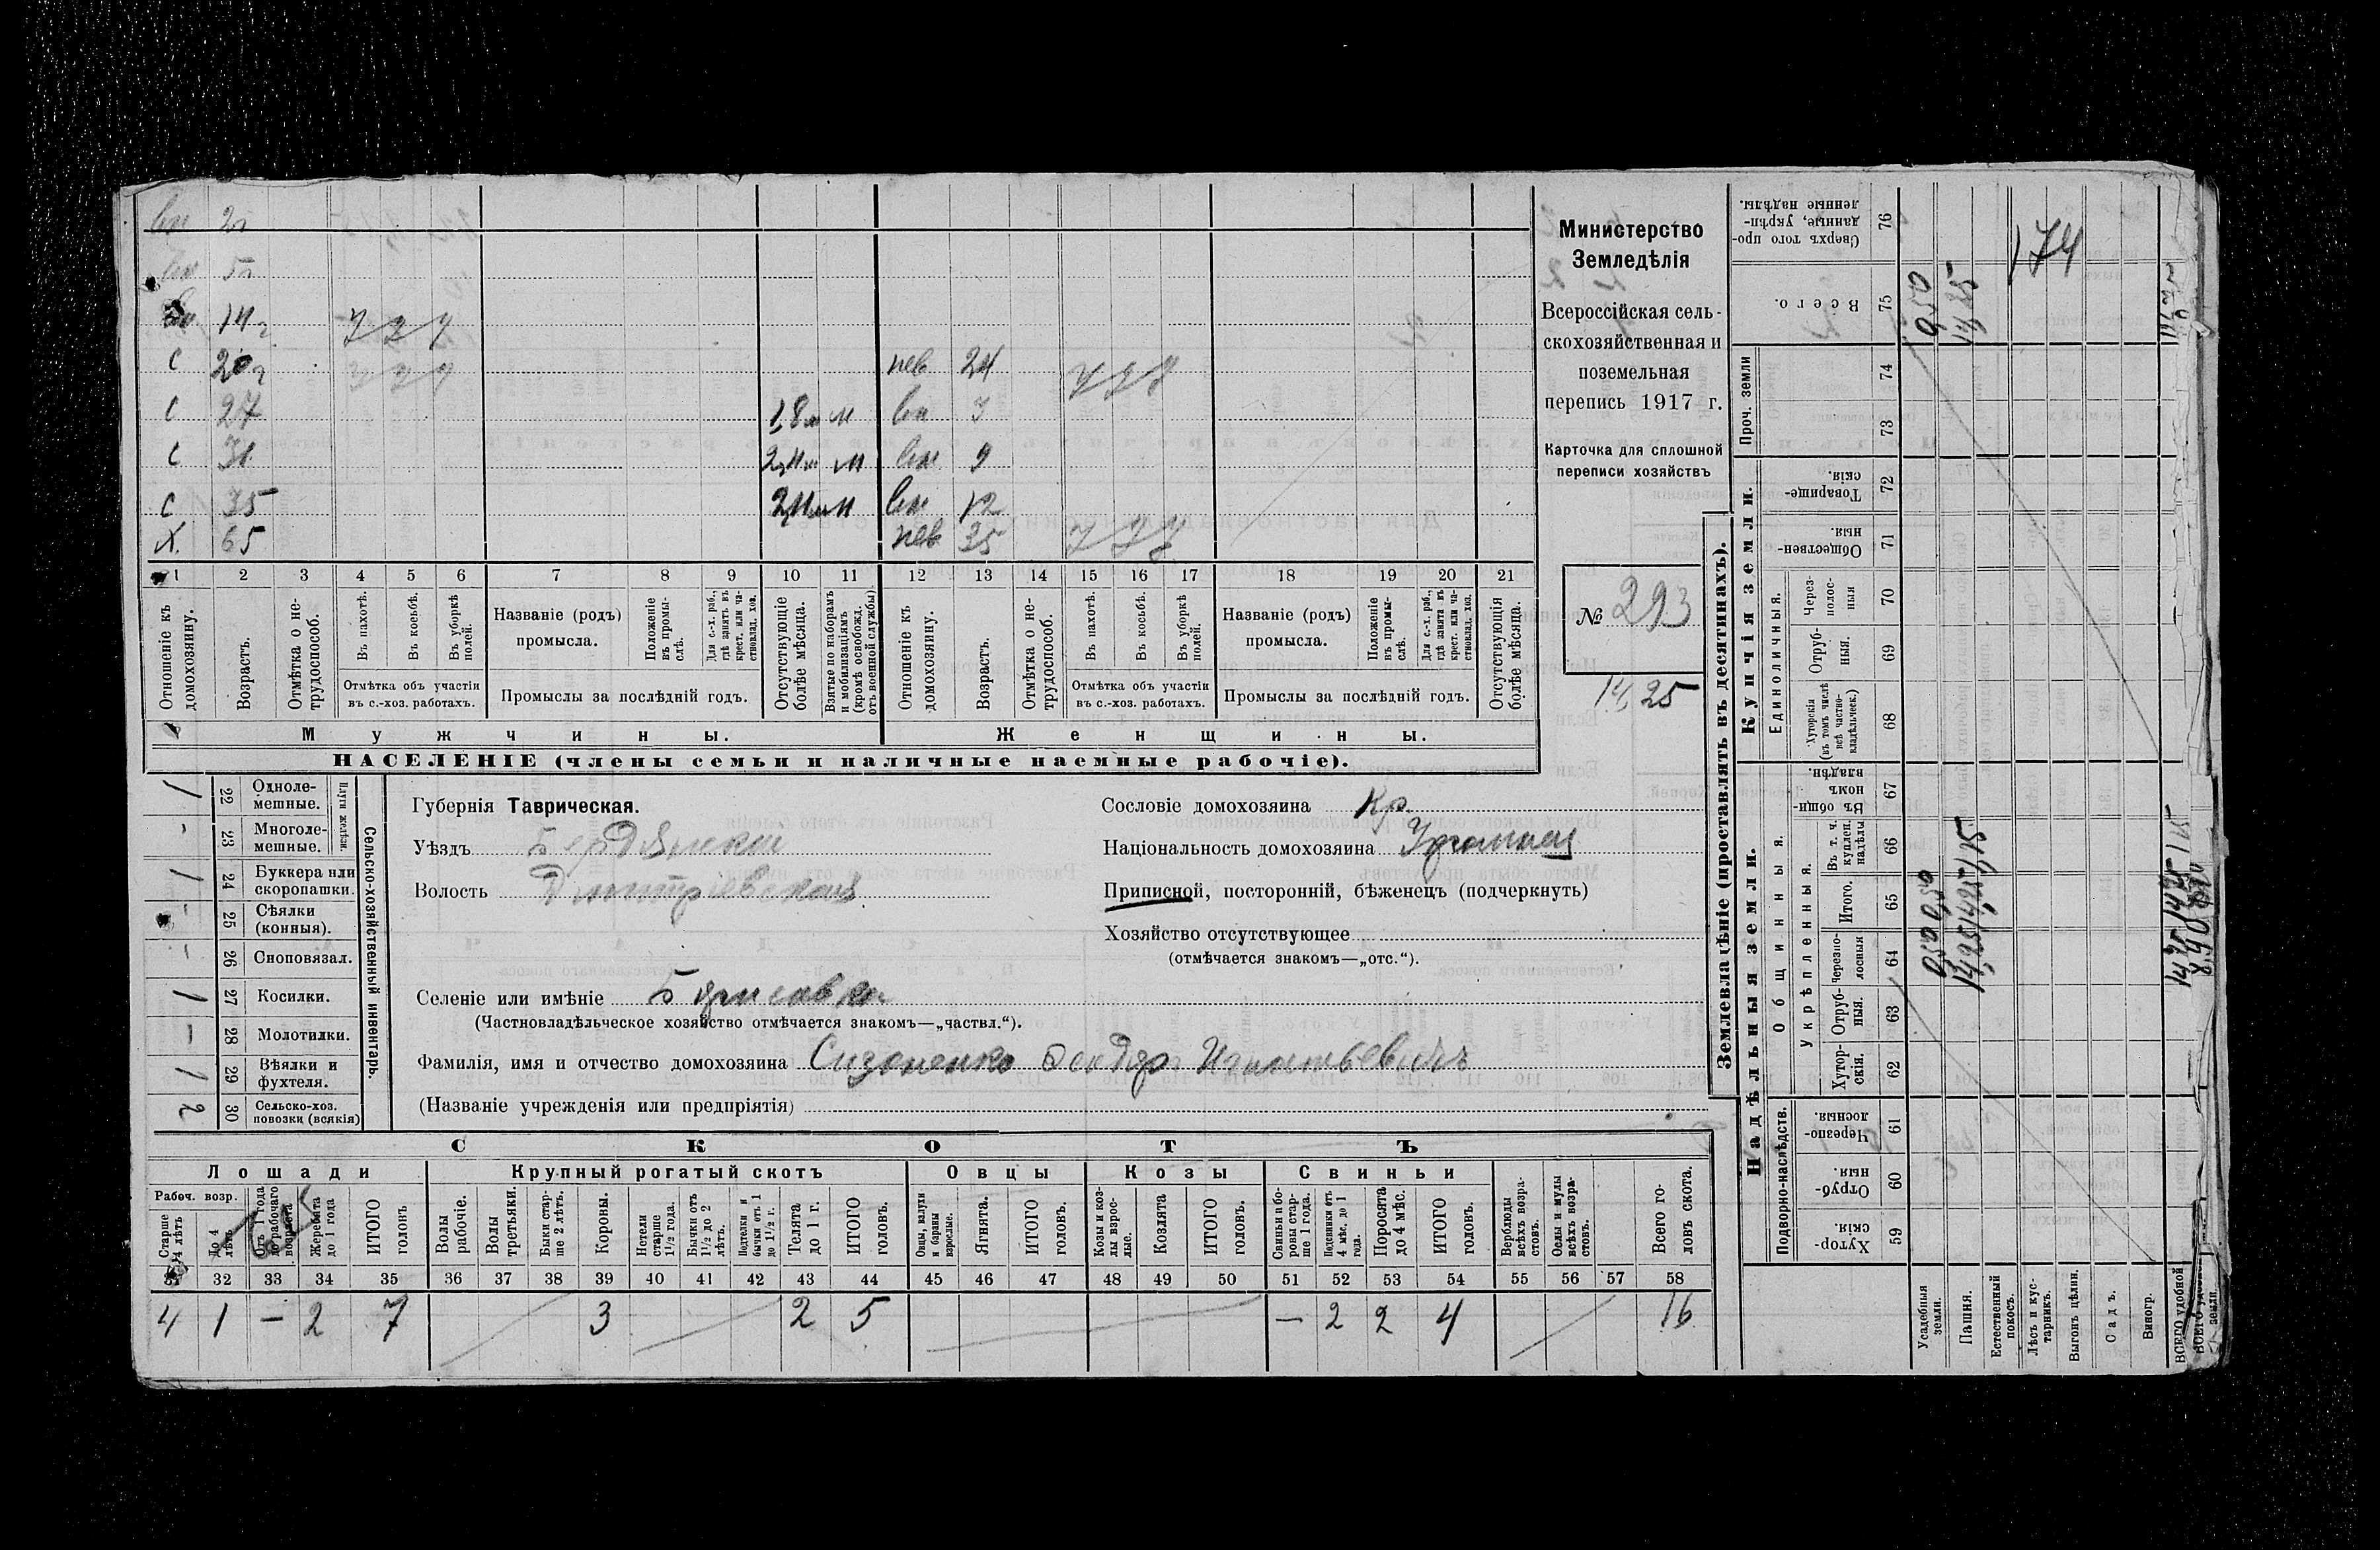 вн 2г
вн 5г
вн 14г
с 20г нев 24
с 27 1,8м м вн 3
с 31 2,11м м вн 9
с 35 2,11м м вн 12
Х. 65 нев 35
1 2 3 4 5 6 7 8 9 10 11 12 13 14 15 16 17 18 19 20 21
Отношеніе къ домохозяину.
Возрастъ.
Отмѣтка о нетрудоспособ.
Въ пахотѣ.
Въ косьбѣ.
Въ уборкѣ полей.
Отмѣтка объ участіи
въ с.-хоз. работахъ.
Названіе (родъ)
промысла.
Положеніе въ промыслѣ.
Для с.-х. раб., гдѣ занятъ въ крест. или частновлад. хоз.
Промыслы за послѣдній годъ.
Отсутствующіе болѣе мѣсяца.
Взятые по наборамъ и мобилизаціямъ (кромѣ освобожд. отъ военной службы)
Отношеніе къ домохозяину.
Возрастъ.
Отмѣтка о нетрудоспособ.
Въ пахотѣ.
Въ косьбѣ.
Въ уборкѣ полей.
Отмѣтка объ участіи
въ с.-хоз. работахъ.
Названіе (родъ)
промысла.
Положеніе въ промыслѣ.
Для с.-х. раб., гдѣ занята въ крест. или частновлад. хоз.
Промыслы за послѣдній годъ.
Отсутствующія болѣе мѣсяца.
Мужчины.
Женщины.
НАСЕЛЕНІЕ (члены семьи и наличные наемные рабочіе).
Министерство
Земледѣлія
Всероссійская сель-
скохозяйственная и
поземельная
перепись 1917 г.
Карточка для сплошной
переписи хозяйствъ
№ 293
14,25
1 22 Одноле-
мешные.
- 23 Многоле-
мешные.
Плуги желѣзн.
1 24 Буккера или
скоропашки.
- 25 Сѣялки
(конныя).
- 26 Сноповязал.
1 27 Косилки.
- 28 Молотилки.
1 29 Вѣялки и
фухтеля.
2 30 Сельско-хоз.
повозки (всякія)
Сельско-хозяйственный инвентарь.
Губернія Таврическая.
Уѣздъ Бердянскій
Волость Дмитріевская
Селеніе или имѣніе Борисовка
(Частновладѣльческое хозяйство отмѣчается знакомъ—„частвл.“).
Фамилія, имя и отчество домохозяина Сизоненко Ѳеодоръ Игнатьевичъ
(Названіе учрежденія или предпріятія)
Сословіе домохозяина Кр.
Національность домохозяина
Приписной, посторонній, бѣженецъ (подчеркнуть)
Хозяйство отсутствующее
(отмѣчается знакомъ—„отс.“).
СКОТЪ
Лошади Крупный рогатый скотъ Овцы Козы Свиньи
Рабоч. возр.
Старше 4 лѣтъ
До 4 лѣтъ
Отъ 1 года до рабочаго возраста
Жеребята до 1 года
ИТОГО головъ
Волы рабочіе.
Волы третьяки.
Быки старше 2 лѣтъ.
Коровы.
Нетели старше 1½ года.
Бычки отъ 1½ до 2 лѣтъ.
Подтелки и бычки отъ 1 до 1½ г.
Телята до 1 г.
ИТОГО головъ.
Овцы, валухи и бараны взрослые.
Ягнята.
ИТОГО головъ.
Козы и козлы взрослые.
Козлята
ИТОГО головъ.
Свиньи и боровы старше 1 года.
Подсвинки отъ 4 мѣс. до 1 года.
Поросята до 4 мѣс.
ИТОГО головъ.
Верблюды всѣхъ возрастовъ.
Ослы и мулы всѣхъ возрастовъ.
Всего головъ скота.
31 32 33 34 35 36 37 38 39 40 41 42 43 44 45 46 47 48 49 50 51 52 53 54 55 56 57 58
4 1 — 2 7 3 2 5 — 2 2 4 16
Землевладѣніе (проставлять въ десятинахъ).
Надѣльныя земли.
Купчія земли.
Проч. земли
Подворно-наслѣдств.
Общинныя.
Укрѣпленныя.
Единоличныя.
Сверхъ того проданные, укрѣпленные надѣлы. 76
Всего. 75
74
73
Товарищескія. 72
Общественныя. 71
Черезполосныя 70
Отрубныя. 69
Хуторскія (въ томъ числѣ всѣ частновладѣльческ.) 68
Въ общинномъ владѣн. 67
Въ т. ч. куплен. надѣлы 66
Итого. 65
Черезполосныя 64
Отрубныя. 63
Хуторскія. 62
Черезполосныя. 61
Отрубныя. 60
Хуторскія. 59
Усадебныя земли. 0,50 0,50 0,50
Пашня. 14,25 14,25 14,25
Естественный покосъ.
Лѣсъ и кустарникъ.
Выгонъ цѣлин.
Садъ.
Виногр.
ВСЕГО удобной
174